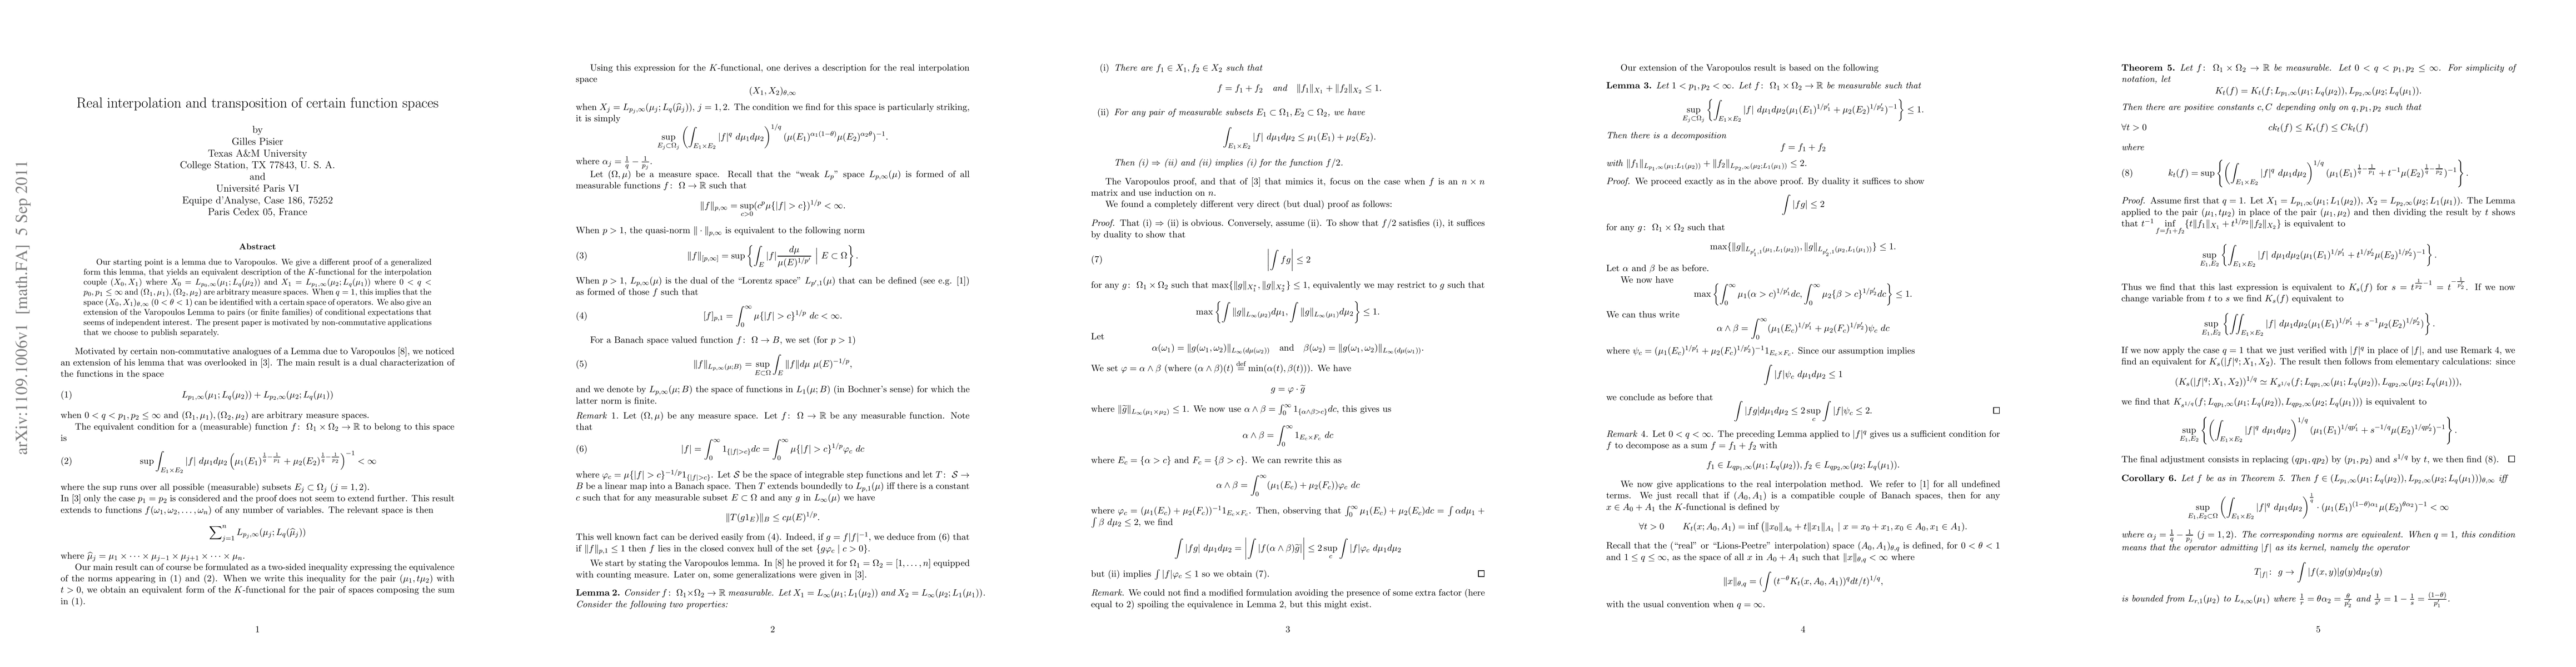 arXiv:1109.1006v1 [math.FA] 5 Sep 2011
Real interpolation and transposition of certain function spaces
by
Gilles Pisier
Texas A&M University
College Station, TX 77843, U. S. A.
and
Université Paris VI
Equipe d'Analyse, Case 186, 75252
Paris Cedex 05, France
Abstract
Our starting point is a lemma due to Varopoulos. We give a different proof of a generalized
form this lemma, that yields an equivalent description of the K-functional for the interpolation
couple (X₀, X₁) where X₀ = L_{p₀,∞}(μ₁; L_q(μ₂)) and X₁ = L_{p₁,∞}(μ₂; L_q(μ₁)) where 0 < q <
p₀, p₁ ≤ ∞ and (Ω₁, μ₁), (Ω₂, μ₂) are arbitrary measure spaces. When q = 1, this implies that the
space (X₀, X₁)_{θ,∞} (0 < θ < 1) can be identified with a certain space of operators. We also give an
extension of the Varopoulos Lemma to pairs (or finite families) of conditional expectations that
seems of independent interest. The present paper is motivated by non-commutative applications
that we choose to publish separately.
Motivated by certain non-commutative analogues of a Lemma due to Varopoulos [8], we noticed
an extension of his lemma that was overlooked in [3]. The main result is a dual characterization of
the functions in the space
(1) L_{p₁,∞}(μ₁; L_q(μ₂)) + L_{p₂,∞}(μ₂; L_q(μ₁))
when 0 < q < p₁, p₂ ≤ ∞ and (Ω₁, μ₁), (Ω₂, μ₂) are arbitrary measure spaces.
The equivalent condition for a (measurable) function f : Ω₁ × Ω₂ → ℝ to belong to this space
is
(2) sup ∫_{E₁×E₂} |f| dμ₁dμ₂ (μ₁(E₁)^{1/q − 1/p₁} + μ₂(E₂)^{1/q − 1/p₂})^{−1} < ∞
where the sup runs over all possible (measurable) subsets E_j ⊂ Ω_j (j = 1, 2).
In [3] only the case p₁ = p₂ is considered and the proof does not seem to extend further. This result
extends to functions f(ω₁, ω₂, . . . , ω_n) of any number of variables. The relevant space is then
∑_{j=1}^n L_{p_j,∞}(μ_j; L_q(μ̂_j))
where μ̂_j = μ₁ × ⋯ × μ_{j−1} × μ_{j+1} × ⋯ × μ_n.
Our main result can of course be formulated as a two-sided inequality expressing the equivalence
of the norms appearing in (1) and (2). When we write this inequality for the pair (μ₁, tμ₂) with
t > 0, we obtain an equivalent form of the K-functional for the pair of spaces composing the sum
in (1).
1
Using this expression for the K-functional, one derives a description for the real interpolation
space
(X₁, X₂)_{θ,∞}
when X_j = L_{p_j,∞}(μ_j; L_q(μ̂_j)), j = 1, 2. The condition we find for this space is particularly striking,
it is simply
sup_{E_j⊂Ω_j} (∫_{E₁×E₂} |f|^q dμ₁dμ₂)^{1/q} (μ(E₁)^{α₁(1−θ)} μ(E₂)^{α₂θ})^{−1}.
where α_j = 1/q − 1/p_j.
Let (Ω, μ) be a measure space. Recall that the “weak L_p” space L_{p,∞}(μ) is formed of all
measurable functions f : Ω → ℝ such that
‖f‖_{p,∞} = sup_{c>0}(c^p μ{|f| > c})^{1/p} < ∞.
When p > 1, the quasi-norm ‖ · ‖_{p,∞} is equivalent to the following norm
(3) ‖f‖_{[p,∞]} = sup {∫_E |f| dμ/μ(E)^{1/p′} | E ⊂ Ω}.
When p > 1, L_{p,∞}(μ) is the dual of the “Lorentz space” L_{p′,1}(μ) that can be defined (see e.g. [1])
as formed of those f such that
(4) [f]_{p,1} = ∫_0^∞ μ{|f| > c}^{1/p} dc < ∞.
For a Banach space valued function f : Ω → B, we set (for p > 1)
(5) ‖f‖_{L_{p,∞}(μ;B)} = sup_{E⊂Ω} ∫_E ‖f‖dμ μ(E)^{−1/p},
and we denote by L_{p,∞}(μ; B) the space of functions in L₁(μ; B) (in Bochner's sense) for which the
latter norm is finite.
Remark 1. Let (Ω, μ) be any measure space. Let f : Ω → ℝ be any measurable function. Note
that
(6) |f| = ∫_0^∞ 1_{{|f|>c}} dc = ∫_0^∞ μ{|f| > c}^{1/p} φ_c dc
where φ_c = μ{|f| > c}^{−1/p} 1_{{|f|>c}}. Let S be the space of integrable step functions and let T : S →
B be a linear map into a Banach space. Then T extends boundedly to L_{p,1}(μ) iff there is a constant
c such that for any measurable subset E ⊂ Ω and any g in L_∞(μ) we have
‖T(g1_E)‖_B ≤ cμ(E)^{1/p}.
This well known fact can be derived easily from (4). Indeed, if g = f|f|^{−1}, we deduce from (6) that
if ‖f‖_{p,1} ≤ 1 then f lies in the closed convex hull of the set {gφ_c | c > 0}.
We start by stating the Varopoulos lemma. In [8] he proved it for Ω₁ = Ω₂ = [1, . . . , n] equipped
with counting measure. Later on, some generalizations were given in [3].
Lemma 2. Consider f : Ω₁×Ω₂ → ℝ measurable. Let X₁ = L_∞(μ₁; L₁(μ₂)) and X₂ = L_∞(μ₂; L₁(μ₁)).
Consider the following two properties:
2
(i) There are f₁ ∈ X₁, f₂ ∈ X₂ such that
f = f₁ + f₂ and ‖f₁‖_{X₁} + ‖f₂‖_{X₂} ≤ 1.
(ii) For any pair of measurable subsets E₁ ⊂ Ω₁, E₂ ⊂ Ω₂, we have
∫_{E₁×E₂} |f| dμ₁dμ₂ ≤ μ₁(E₁) + μ₂(E₂).
Then (i) ⇒ (ii) and (ii) implies (i) for the function f/2.
The Varopoulos proof, and that of [3] that mimics it, focus on the case when f is an n × n
matrix and use induction on n.
We found a completely different very direct (but dual) proof as follows:
Proof. That (i) ⇒ (ii) is obvious. Conversely, assume (ii). To show that f/2 satisfies (i), it suffices
by duality to show that
(7) |∫ fg| ≤ 2
for any g : Ω₁ × Ω₂ such that max{‖g‖_{X₁*}, ‖g‖_{X₂*}} ≤ 1, equivalently we may restrict to g such that
max {∫ ‖g‖_{L_∞(μ₂)}dμ₁, ∫ ‖g‖_{L_∞(μ₁)}dμ₂} ≤ 1.
Let
α(ω₁) = ‖g(ω₁, ω₂)‖_{L_∞(dμ(ω₂))} and β(ω₂) = ‖g(ω₁, ω₂)‖_{L_∞(dμ(ω₁))}.
We set φ = α ∧ β (where (α ∧ β)(t) =^{def} min(α(t), β(t))). We have
g = φ · g̃
where ‖g̃‖_{L_∞(μ₁×μ₂)} ≤ 1. We now use α ∧ β = ∫_0^∞ 1_{{α∧β>c}}dc, this gives us
α ∧ β = ∫_0^∞ 1_{E_c×F_c} dc
where E_c = {α > c} and F_c = {β > c}. We can rewrite this as
α ∧ β = ∫_0^∞ (μ₁(E_c) + μ₂(F_c))φ_c dc
where φ_c = (μ₁(E_c) + μ₂(F_c))^{−1}1_{E_c×F_c}. Then, observing that ∫_0^∞ μ₁(E_c) + μ₂(E_c)dc = ∫ αdμ₁ +
∫ β dμ₂ ≤ 2, we find
∫ |fg| dμ₁dμ₂ = |∫ f(α ∧ β)g̃| ≤ 2 sup_c ∫ |f|φ_c dμ₁dμ₂
but (ii) implies ∫ |f|φ_c ≤ 1 so we obtain (7). □
Remark. We could not find a modified formulation avoiding the presence of some extra factor (here
equal to 2) spoiling the equivalence in Lemma 2, but this might exist.
3
Our extension of the Varopoulos result is based on the following
Lemma 3. Let 1 < p₁, p₂ < ∞. Let f : Ω₁ × Ω₂ → ℝ be measurable such that
sup_{E_j⊂Ω_j} {∫_{E₁×E₂} |f| dμ₁dμ₂(μ₁(E₁)^{1/p₁′} + μ₂(E₂)^{1/p₂′})^{−1}} ≤ 1.
Then there is a decomposition
f = f₁ + f₂
with ‖f₁‖_{L_{p₁,∞}(μ₁;L₁(μ₂))} + ‖f₂‖_{L_{p₂,∞}(μ₂;L₁(μ₁))} ≤ 2.
Proof. We proceed exactly as in the above proof. By duality it suffices to show
∫ |fg| ≤ 2
for any g : Ω₁ × Ω₂ such that
max{‖g‖_{L_{p₁′,1}(μ₁,L₁(μ₂))}, ‖g‖_{L_{p₂′,1}(μ₂,L₁(μ₁))}} ≤ 1.
Let α and β be as before.
We now have
max {∫_0^∞ μ₁(α > c)^{1/p₁′}dc, ∫_0^∞ μ₂{β > c}^{1/p₂′}dc} ≤ 1.
We can thus write
α ∧ β = ∫_0^∞ (μ₁(E_c)^{1/p₁′} + μ₂(F_c)^{1/p₂′})ψ_c dc
where ψ_c = (μ₁(E_c)^{1/p₁′} + μ₂(F_c)^{1/p₂′})^{−1}1_{E_c×F_c}. Since our assumption implies
∫ |f|ψ_c dμ₁dμ₂ ≤ 1
we conclude as before that
∫ |fg|dμ₁dμ₂ ≤ 2 sup_c ∫ |f|ψ_c ≤ 2. □
Remark 4. Let 0 < q < ∞. The preceding Lemma applied to |f|^q gives us a sufficient condition for
f to decompose as a sum f = f₁ + f₂ with
f₁ ∈ L_{qp₁,∞}(μ₁; L_q(μ₂)), f₂ ∈ L_{qp₂,∞}(μ₂; L_q(μ₁)).
We now give applications to the real interpolation method. We refer to [1] for all undefined
terms. We just recall that if (A₀, A₁) is a compatible couple of Banach spaces, then for any
x ∈ A₀ + A₁ the K-functional is defined by
∀t > 0 K_t(x; A₀, A₁) = inf (‖x₀‖_{A₀} + t‖x₁‖_{A₁} | x = x₀ + x₁, x₀ ∈ A₀, x₁ ∈ A₁).
Recall that the (“real” or “Lions-Peetre” interpolation) space (A₀, A₁)_{θ,q} is defined, for 0 < θ < 1
and 1 ≤ q ≤ ∞, as the space of all x in A₀ + A₁ such that ‖x‖_{θ,q} < ∞ where
‖x‖_{θ,q} = (∫ (t^{−θ}K_t(x, A₀, A₁))^q dt/t)^{1/q},
with the usual convention when q = ∞.
4
Theorem 5. Let f : Ω₁ × Ω₂ → ℝ be measurable. Let 0 < q < p₁, p₂ ≤ ∞. For simplicity of
notation, let
K_t(f) = K_t(f; L_{p₁,∞}(μ₁; L_q(μ₂)), L_{p₂,∞}(μ₂; L_q(μ₁)).
Then there are positive constants c, C depending only on q, p₁, p₂ such that
∀t > 0 ck_t(f) ≤ K_t(f) ≤ Ck_t(f)
where
(8) k_t(f) = sup {(∫_{E₁×E₂} |f|^q dμ₁dμ₂)^{1/q} (μ₁(E₁)^{1/q − 1/p₁} + t^{−1}μ(E₂)^{1/q − 1/p₂})^{−1}}.
Proof. Assume first that q = 1. Let X₁ = L_{p₁,∞}(μ₁; L₁(μ₂)), X₂ = L_{p₂,∞}(μ₂; L₁(μ₁)). The Lemma
applied to the pair (μ₁, tμ₂) in place of the pair (μ₁, μ₂) and then dividing the result by t shows
that t^{−1} inf_{f=f₁+f₂} {t‖f₁‖_{X₁} + t^{1/p₂}‖f₂‖_{X₂}} is equivalent to
sup_{E₁,E₂} {∫_{E₁×E₂} |f| dμ₁dμ₂(μ₁(E₁)^{1/p₁′} + t^{1/p₂′}μ(E₂)^{1/p₂′})^{−1}}.
Thus we find that this last expression is equivalent to K_s(f) for s = t^{1/p₂ − 1} = t^{−1/p₂′}. If we now
change variable from t to s we find K_s(f) equivalent to
sup_{E₁,E₂} {∬_{E₁×E₂} |f| dμ₁dμ₂(μ₁(E₁)^{1/p₁′} + s^{−1}μ₂(E₂)^{1/p₂′})}.
If we now apply the case q = 1 that we just verified with |f|^q in place of |f|, and use Remark 4, we
find an equivalent for K_s(|f|^q; X₁, X₂). The result then follows from elementary calculations: since
(K_s(|f|^q; X₁, X₂))^{1/q} ≃ K_{s^{1/q}}(f; L_{qp₁,∞}(μ₁; L_q(μ₂)), L_{qp₂,∞}(μ₂; L_q(μ₁))),
we find that K_{s^{1/q}}(f; L_{qp₁,∞}(μ₁; L_q(μ₂)), L_{qp₂,∞}(μ₂; L_q(μ₁))) is equivalent to
sup_{E₁,E₂} {(∫_{E₁×E₂} |f|^q dμ₁dμ₂)^{1/q} (μ₁(E₁)^{1/qp₁′} + s^{−1/q}μ(E₂)^{1/qp₂′})^{−1}}.
The final adjustment consists in replacing (qp₁, qp₂) by (p₁, p₂) and s^{1/q} by t, we then find (8). □
Corollary 6. Let f be as in Theorem 5. Then f ∈ (L_{p₁,∞}(μ₁; L_q(μ₂)), L_{p₂,∞}(μ₂; L_q(μ₁)))_{θ,∞} iff
sup_{E₁,E₂⊂Ω} (∫_{E₁×E₂} |f|^q dμ₁dμ₂)^{1/q} · (μ₁(E₁)^{(1−θ)α₁} μ(E₂)^{θα₂})^{−1} < ∞
where α_j = 1/q − 1/p_j (j = 1, 2). The corresponding norms are equivalent. When q = 1, this condition
means that the operator admitting |f| as its kernel, namely the operator
T_{|f|} : g → ∫ |f(x, y)|g(y)dμ₂(y)
is bounded from L_{r,1}(μ₂) to L_{s,∞}(μ₁) where 1/r = θα₂ = θ/p₂′ and 1/s′ = 1 − 1/s = (1−θ)/p₁′.
5